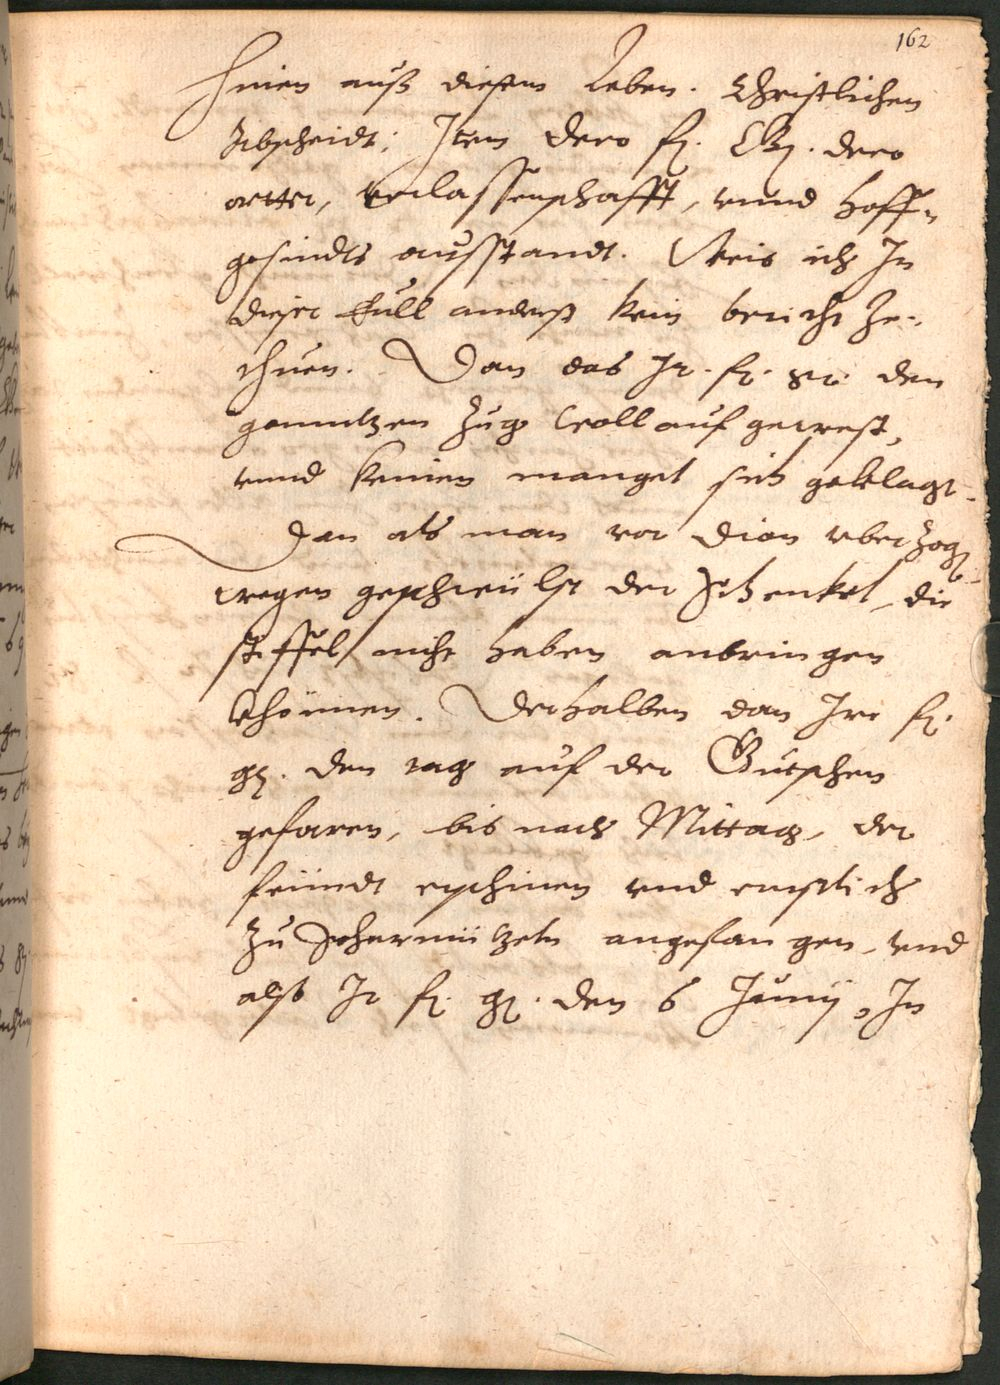 162
hinen auß diesem Leben. Christlichen
Abscheidt; Item dero fl. Gl. dero
ortter, verlassenschafft, vnnd hoff-
gesindts ausstandt. Weis ich In
dieser Eull anderst kein bericht Ze-
thuen. Dan das Ir. fl. gl. den
ganntzen Zug woll auf gewest,
vnnd keinen mangel sich geklagt.
Dan als man vor Dion vberZog
wegen geschwüllst der Schenkel, die
stiffel nicht haben anbringen
khönnen. Derhalben dan Ire fl.
gl. den tag auf der Gutschen
gefaren, bis nach Mittag, der
feündt erschinen vnd ernstlich
Zu Scharmützeln angefangen, vnd
alß Ir fl. gl. den 6 Junij, In